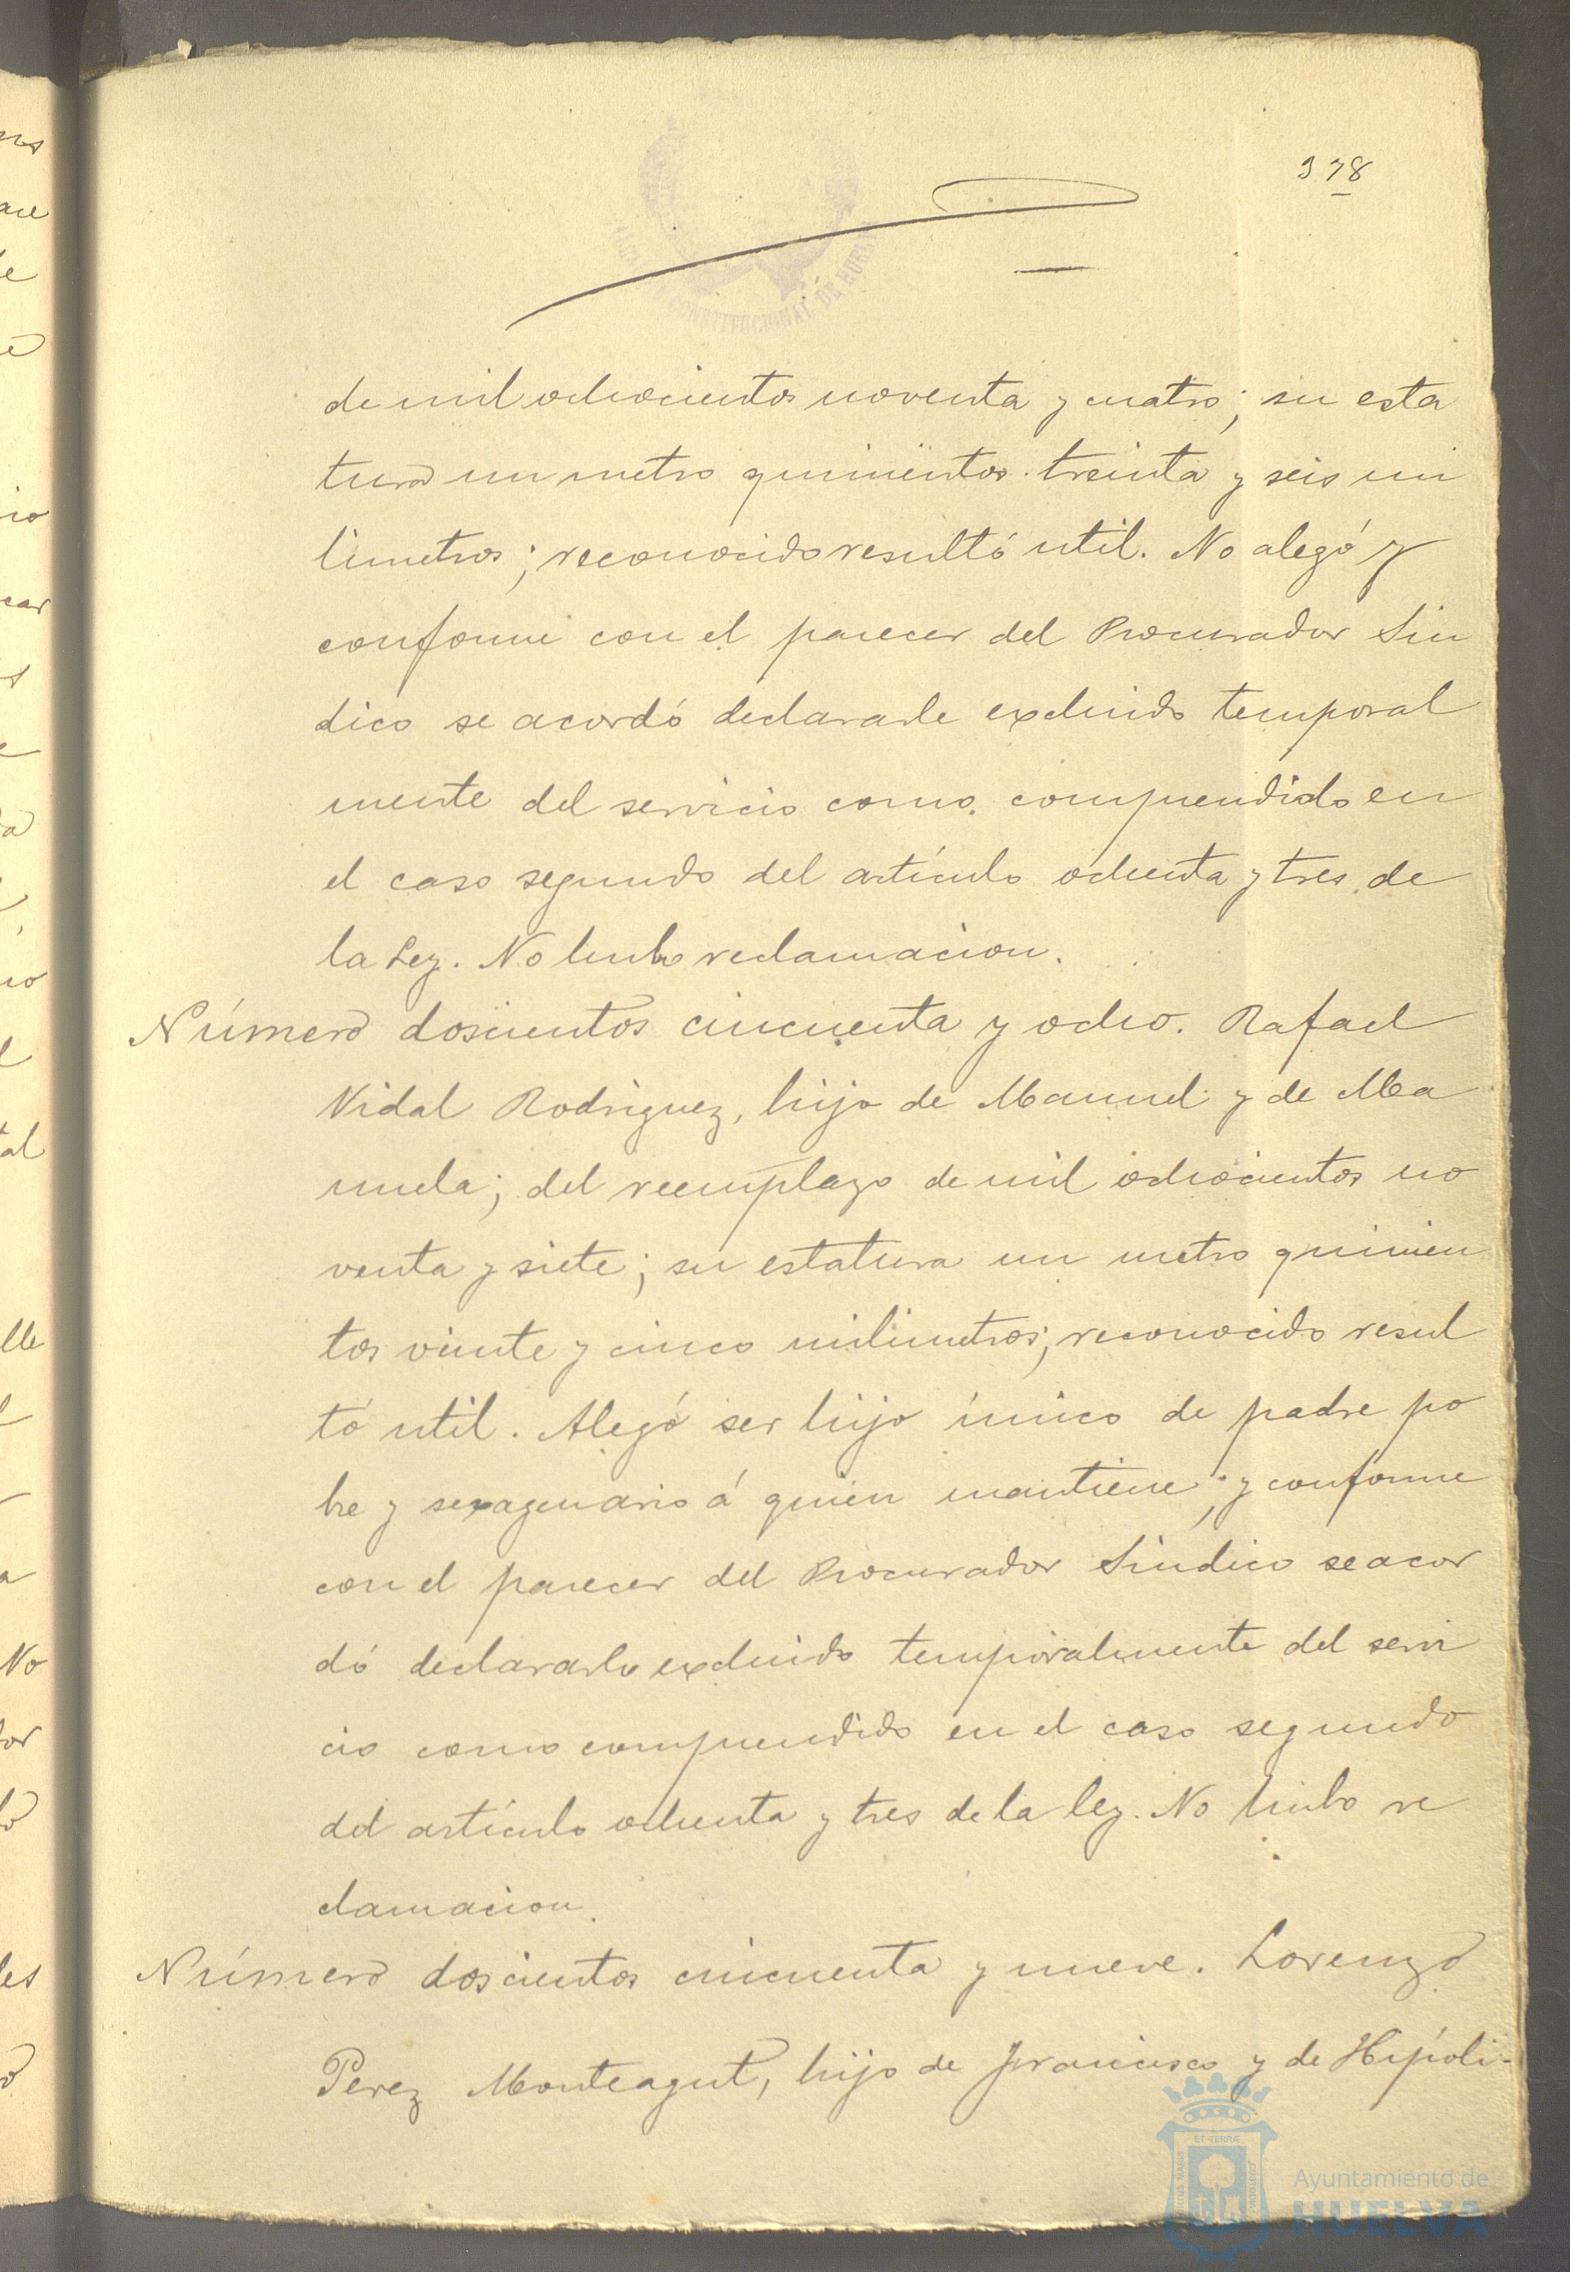 378
CONSTITUCIONAL DE HUELVA
de mil ochocientos noventa y cuatro; su esta
tura un metro quinientos treinta y seis mi
limetros; reconocido resultó util. No alegó y
conforme con el parecer del Procurador Sin
dico se acordó declararle excluido temporal
mente del servicio como comprendido en
el caso segundo del artículo ochenta y tres de
la Ley. No hubo reclamacion.
Número doscientos cincuenta y ocho. Rafael
Vidal Rodriguez, hijo de Manuel y de Ma
nuela; del reemplazo de mil ochocientos no
venta y siete; su estatura un metro quinien
tos veinte y cinco milimetros; reconocido resul
tó util. Alegó ser hijo único de padre po
bre y sexagenario á quien mantiene; y conforme
con el parecer del Procurador Sindico se acor
dó declararlo excluido temporalmente del servi
cio como comprendido en el caso segundo
del artículo ochenta y tres de la ley. No hubo re
clamacion.
Número doscientos cincuenta y nueve. Lorenzo
Perez Monteagut, hijo de Francisco y de Hipóli-
Ayuntamiento de
HUELVA